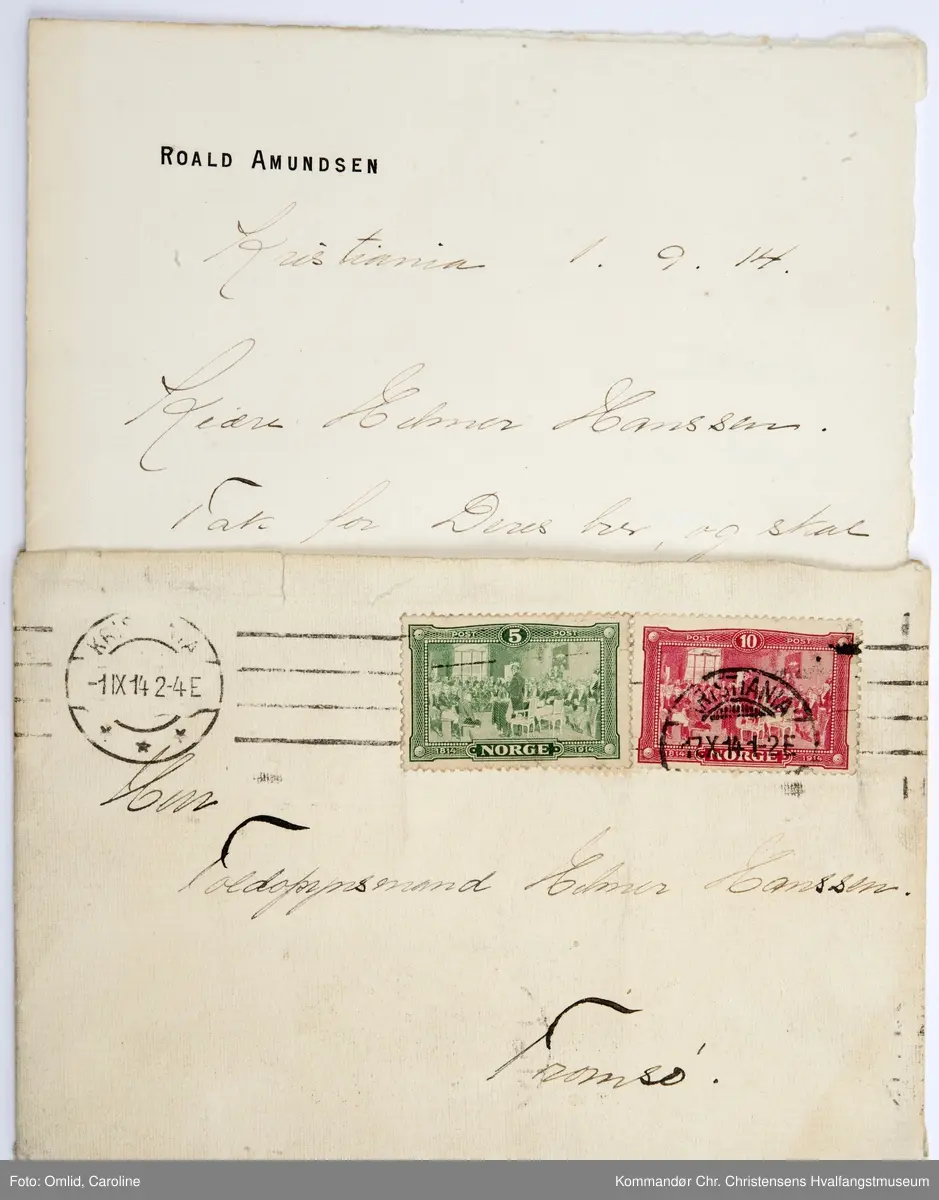 ROALD AMUNDSEN
Kristiania 1. 9. 14.
Kjære Helmer Hanssen.
Tak for Deres brev, og skal
KRISTIANIA
-1 IX 14 2-4 E
POST 5 POST
1814 NORGE 1914
POST 10 POST
KRISTIANIA
-7 X 14 1-2 E
1814 NORGE 1914
Herr
Toldopsynsmand Helmer Hanssen.
Tromsø.
Foto: Omlid, Caroline
Kommandør Chr. Christensens Hvalfangstmuseum